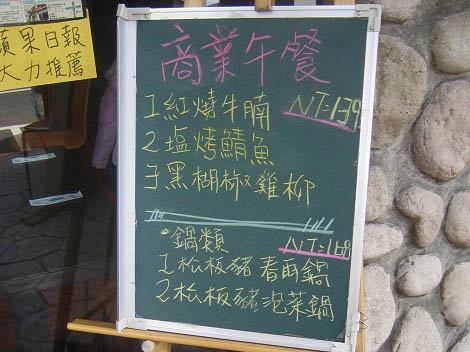 蘋果日報
大力推薦
商業午餐
1 紅燒牛腩 NT=139
2 塩烤鯖魚
3 黑胡椒雞柳
鍋類 NT=168
1 松板豬 春雨鍋
2 松板豬 泡菜鍋